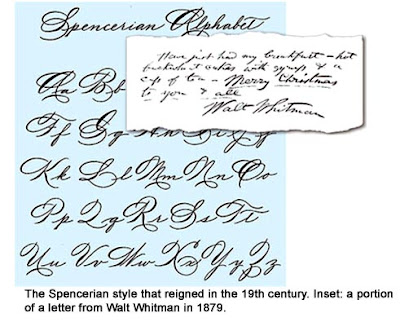 Spencerian Alphabet
Have just had my breakfast - hot
buckwheat cakes with syrup & a
cup of tea - Merry Christmas
to you & all
Walt Whitman
Aa Bb
Ff Gg Hh
Kk Ll Mm Nn Oo
Pp Qq Rr Ss Tt
Uu Vv Ww Xx Yy Zz
The Spencerian style that reigned in the 19th century. Inset: a portion
of a letter from Walt Whitman in 1879.